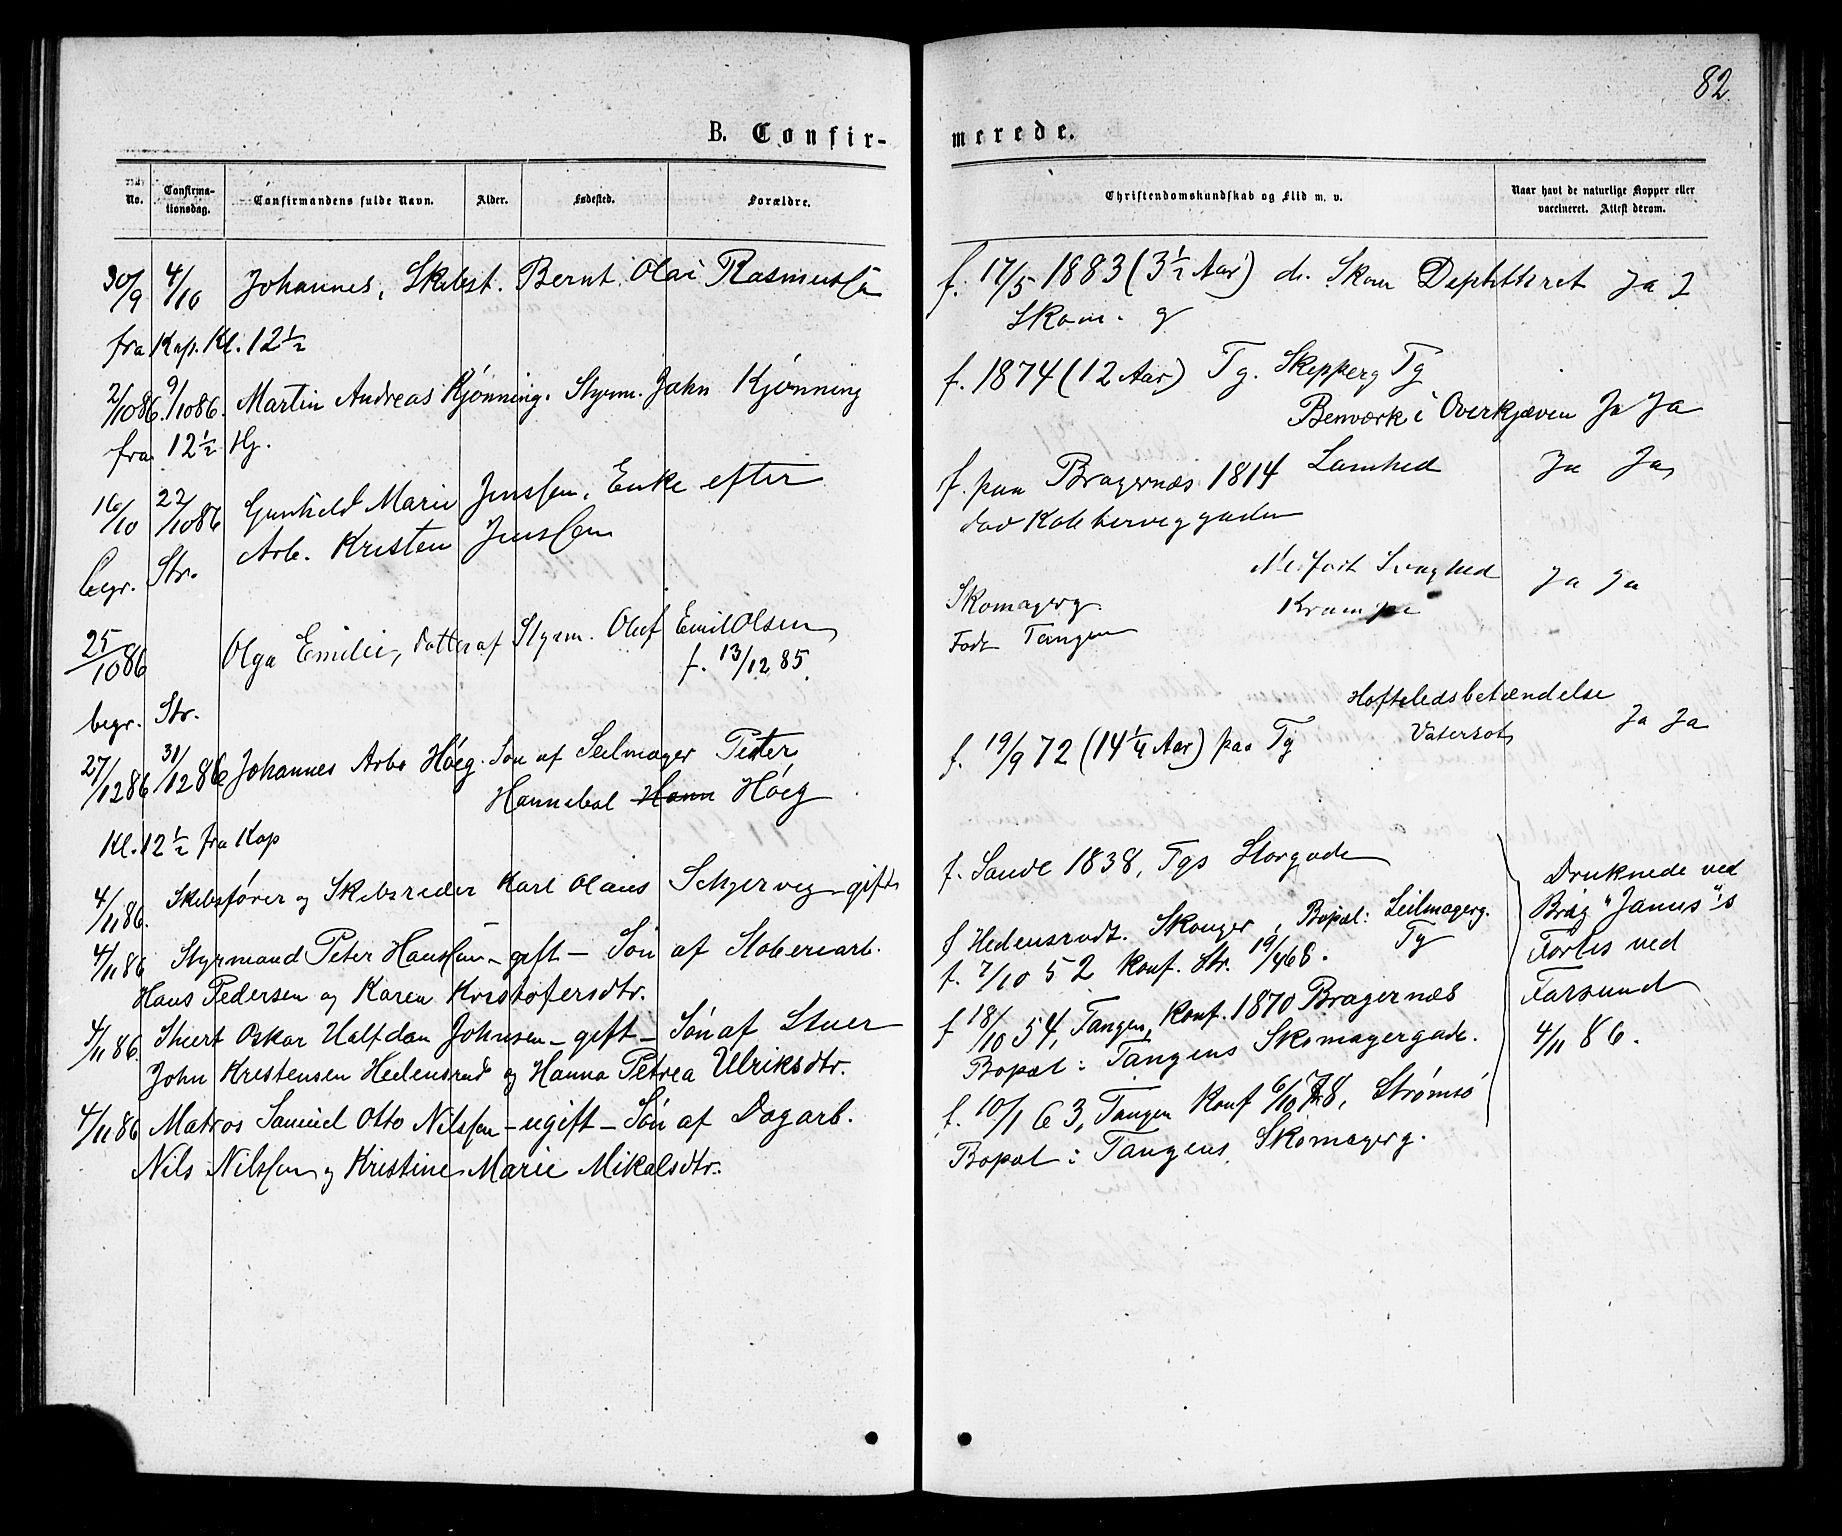 82.
B. Confir-
merede.
No.
Confirma-
tionsdag.
Confirmandens fulde Navn.
Alder.
Fødested.
Forældre.
Christendomskundskab og Flid m. v.
Naar havt de naturlige Kopper eller
vaccineret. Attest derom.
30/9 4/10 Johannes, Skibst. Bernt Olai Rasmussen
fra Kap. Kl. 12½
2/10 86. 9/10 86. Martin Andreas Kjønning. Styrm. Jahn Kjønning
fra 12½ Hj.
16/10 22/10 86 Gunhild Marie Jenssen, Enke efter
Arb. Kristen Jenssen
begr. Str.
25/10 86 Olga Emilie, Datter af Styrm. Oluf Emil Olsen
f. 13/12 85.
begr. Str.
27/12 86 31/12 86 Johannes Arbo Høeg. Søn af Seilmager Peter
Hannebal Høeg
Kl. 12½ fra Kap
4/11 86. Skibsfører og Skibsreder Karl Olaus Schjerveg gift
4/11 86 Styrmand Peter Hanssen - gift - Søn af Støberiarb.
Hans Pedersen og Karen Kristofersdtr.
4/11 86. Stuert Oskar Halfdan Johnsen - gift - Søn af Stuer
John Kristensen Hedensrud og Hanna Petrea Ulriksdtr.
4/11 86 Matros Samuel Otto Nilssen - ugift - Søn af Dagarb.
Nils Nilssen og Kristine Marie Mikalsdtr.
f. 17/5 1883 (3½ Aar) Skom Dephtteret Ja J
Skom. g
f. 1874 (12 Aar) Tg. Skipperg Tg
Benværk i Overkjæven Ja Ja
f. paa Bragernæs 1814 Lamhed Ja Ja
Skomagerg. Krampe Ja Ja
Født Tangen
Hofteledsbetændelse
f. 19/9 72 (14¼ Aar) paa Tg Vatersot Ja Ja
f. Sande 1838, Tgs Storgade
f Hedensrudt. Skouger, Bopæl: Seilmagerg.
f. 7/10 52 konf. Str. 19/4 68. Tg
f 18/10 54, Tangen, konf. 1870 Bragernæs
Bopæl: Tangens Skomagergade.
f. 10/1 63, Tangen Konf 6/10 78, Strømsø
Bopæl: Tangens Skomagerg.
Druknede ved
Brig "Janus"'s
Forlis ved
Farsund
4/11 86.